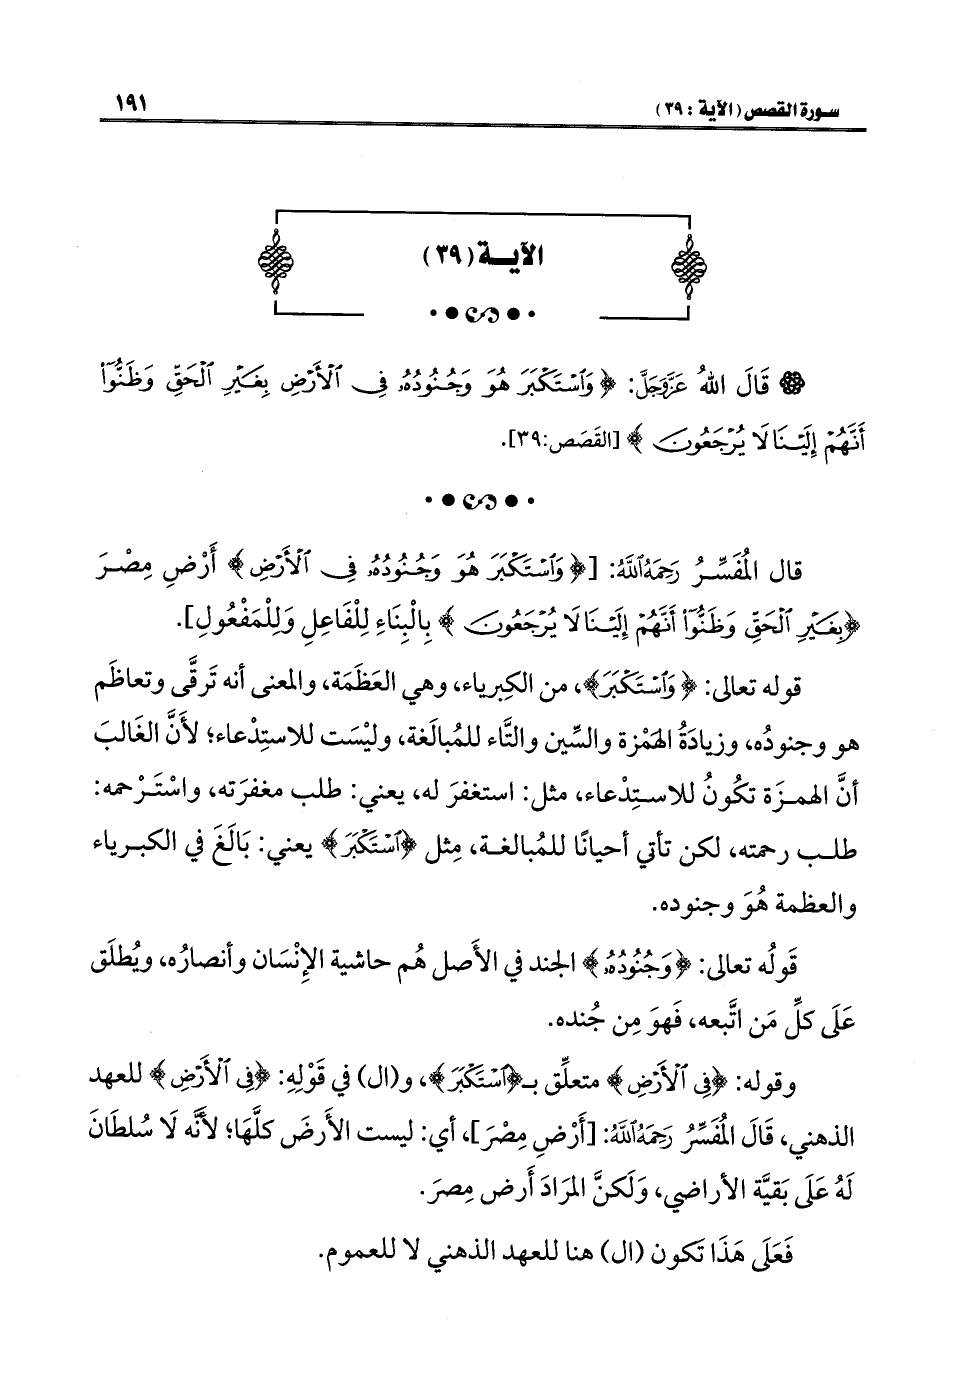 سورة القصص (الآية : ٣٩)
١٩١
الآيـــة (٣٩)
قَالَ اللهُ عَزَّوَجَلَّ: ﴿ وَٱسْتَكْبَرَ هُوَ وَجُنُودُهُۥ فِى ٱلْأَرْضِ بِغَيْرِ ٱلْحَقِّ وَظَنُّوٓا۟
أَنَّهُمْ إِلَيْنَا لَا يُرْجَعُونَ ﴾ [القَصَص:٣٩].
قال المُفَسِّرُ رَحِمَهُ اللَّهُ: [﴿ وَٱسْتَكْبَرَ هُوَ وَجُنُودُهُۥ فِى ٱلْأَرْضِ ﴾ أَرْضِ مِصْرَ
﴿بِغَيْرِ ٱلْحَقِّ وَظَنُّوٓا۟ أَنَّهُمْ إِلَيْنَا لَا يُرْجَعُونَ ﴾ بِالْبِنَاءِ لِلْفَاعِلِ وَلِلْمَفْعُولِ].
قوله تعالى: ﴿ وَٱسْتَكْبَرَ﴾، من الكِبرياء، وهي العَظَمَة، والمعنى أنه تَرقَّى وتعاظَم
هو وجنودُه، وزيادَةُ الهَمْزة والسِّين والتَّاء للمُبالَغة، وليْسَت للاستِدْعاء؛ لأَنَّ الغَالبَ
أنَّ الهمـزَة تكُونُ للاسـتِدْعاء، مثل: استغفرَ له، يعني: طلب مغفرَته، واسْتَـرْحمه:
طلـب رحمته، لكن تأتي أحيانًا للمُبالغـة، مِثل ﴿ٱسْتَكْبَرَ﴾ يعني: بَالَغَ في الكبـرياء
والعظمة هُوَ وجنوده.
قَولُه تعالى: ﴿وَجُنُودُهُۥ﴾ الجند في الأَصل هُم حاشية الإِنْسَان وأنصارُه، ويُطلَق
عَلَى كلِّ مَن اتَّبعه، فَهوَ مِن جُنده.
وقوله: ﴿فِى ٱلْأَرْضِ﴾ متعلِّق بـ﴿ٱسْتَكْبَرَ﴾، و(ال) في قَوْلِهِ: ﴿فِى ٱلْأَرْضِ﴾ للعهد
الذهني، قَالَ المُفَسِّرُ رَحِمَهُ اللَّهُ: [أَرْضِ مِصْرَ]، أي: ليست الأرضَ كلَّهَا؛ لأَنَّه لَا سُلطَانَ
لَهُ عَلَى بَقيَّة الأراضي، وَلَكنَّ المُرَادَ أَرض مِصرَ.
فَعَلَى هَذَا تَكون (ال) هنا للعهد الذهني لا للعموم.